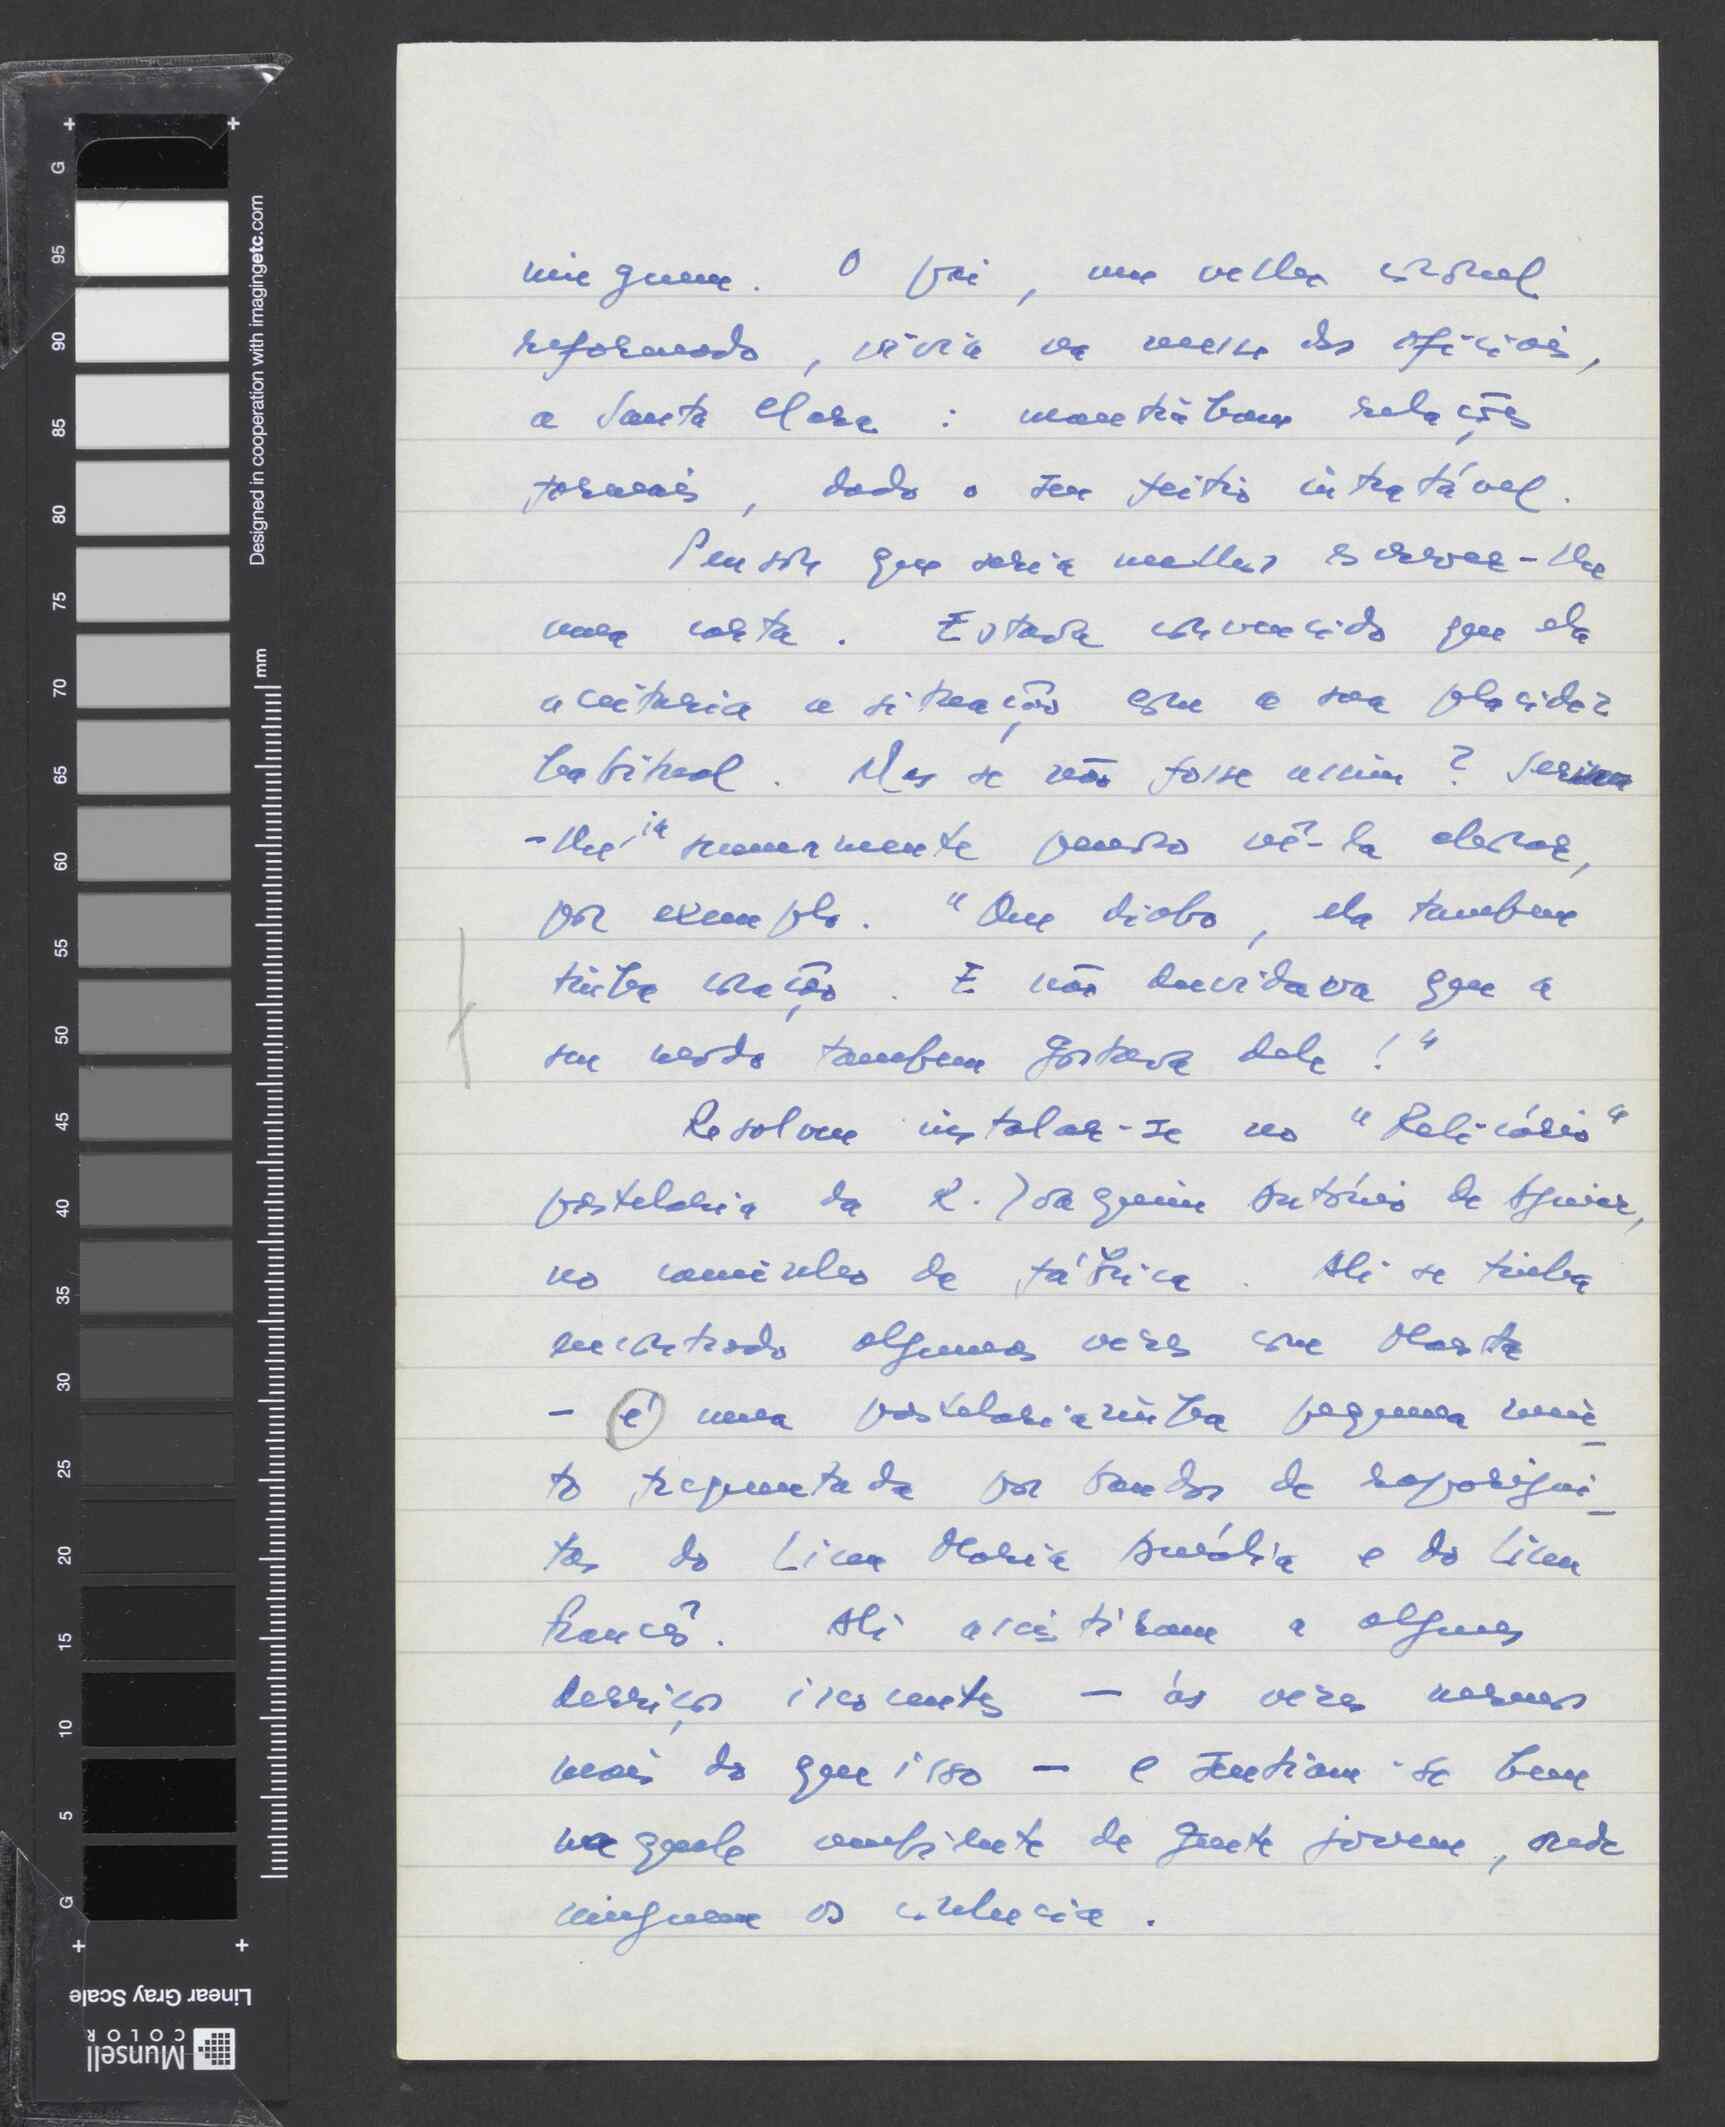 ninguem. O pai, um velho coronel
reformado, vivia na messe dos oficiais,
a Santa Clara : mantinham relações
formais, dado o seu feitio intratável.
Pensou que seria melhor escrever-lhe
uma carta. Estava convencido que ela
aceitaria a situação com a sua placidez
habitual. Mas se não fosse assim ? Ser
-lhe-ia sumamente penoso vê-la chorar,
por exemplo. "Que diabo, ela tambem
tinha coração. E não duvidava que a
seu modo tambem gostava dele !"
Resolveu instalar-se no "Relicário"
pastelaria da R. Joaquim António de Aguiar,
no caminho da fábrica. Ali se tinha
encontrado algumas vezes com Marta
- é uma pastelariazinha pequena mui-
to frequentada por bandos de raparigui-
tas do Liceu Maria Amália e do Liceu
francês. Ali assistiram a alguns
derriços inocentes - ás vezes mesmo
mais do que isso - e sentiam-se bem
naquele ambiente de gente jovem, onde
ninguem os conhecia.
G 95 90 85 80 75 70 65 60 55 50 45 40 35 30 25 20 15 10 5 G
Designed in cooperation with imagingetc.com
mm
Linear Gray Scale
Munsell
COLOR